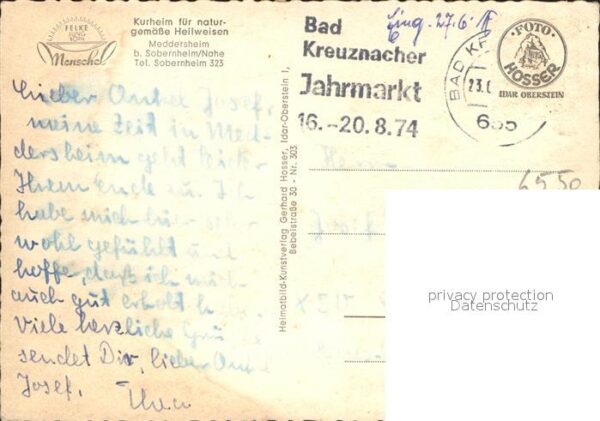 FELKE
Menschel
Kurheim für natur-
gemäße Heilweisen
Meddersheim
b. Sobernheim/Nahe
Tel. Sobernheim 323
Bad
Kreuznacher
Jahrmarkt
16.-20.8.74
Eing. 27.6.
BAD KR
23.
655
FOTO
HOSSER
IDAR OBERSTEIN
Lieber Onkel Josef,
meine Zeit in Med-
dersheim geht leider
ihrem Ende zu. Ich
habe mich hier sehr
wohl gefühlt und
hoffe, daß ich mich
auch gut erholt habe.
Viele herzliche Grüße
sendet Dir, lieber Onkel
Josef,
Heimatbild-Kunstverlag Gerhard Hosser, Idar-Oberstein 1,
Bebelstraße 30 - Nr. 303
Herrn
6550
privacy protection
Datenschutz